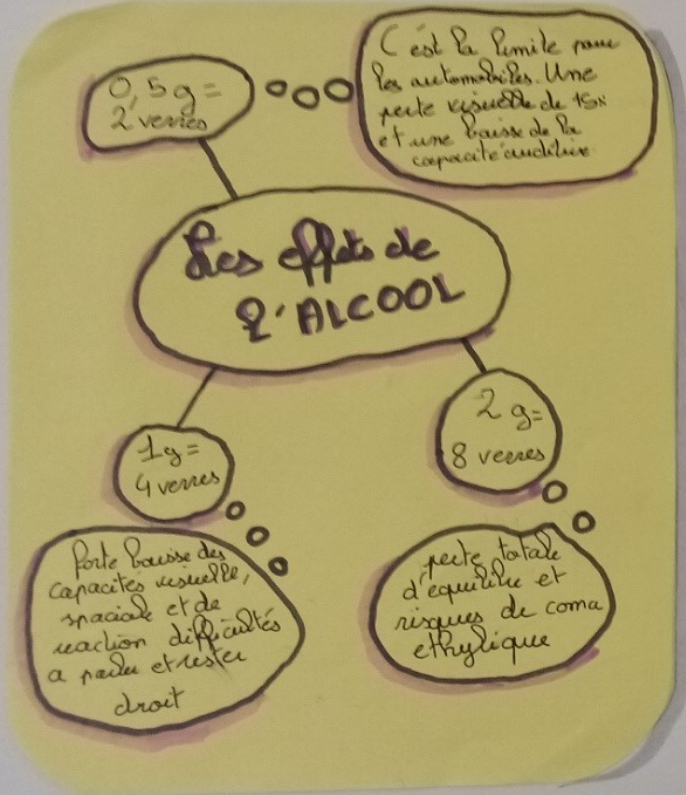 0,5g =
2 verres
C'est la limite pour
les automobiles. Une
perte visuelle de 15%
et une baisse de la
capacité auditive
Les effets de
l'ALCOOL
1g =
4 verres
2 g=
8 verres
forte baisse des
capacités visuelle,
spaciale et de
reaction difficultés
a parler et rester
droit
perte totale
d'equilibre et
risques de coma
ethylique